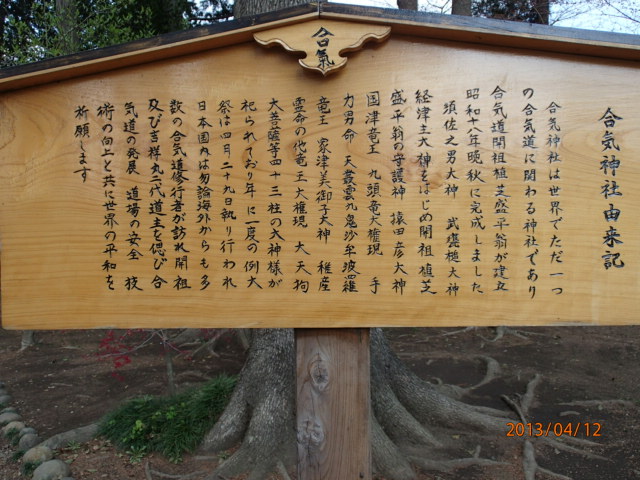 合氣
合気神社由来記
合気神社は世界でただ一つ
の合気道に関わる神社であり
合気道開祖植芝盛平翁が建立
昭和十八年晩秋に完成しました
須佐之男大神 武甕槌大神
経津主大神をはじめ開祖植芝
盛平翁の守護神 猿田彦大神
国津竜王 九頭竜大権現 手
力男命 天叢雲九鬼沙牟波羅
竜王 家津美御子大神 稚産
霊命の他竜王大権現 大天狗
大菩薩等四十三柱の大神様が
祀られており年に一度の例大
祭は四月二十九日執り行われ
日本国内は勿論海外からも多
数の合気道修行者が訪れ開祖
及び吉祥丸二代道主を偲び合
気道の発展 道場の安全 技
術の向上と共に世界の平和を
祈願します
2013/04/12